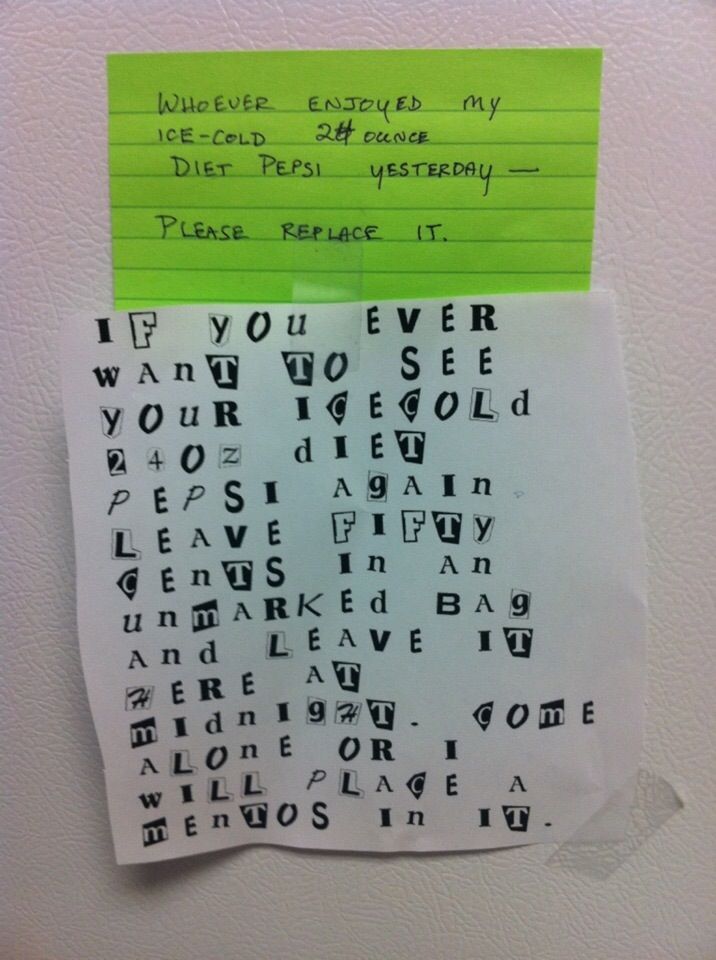 WHOEVER ENJOYED MY
ICE-COLD 24 OUNCE
DIET PEPSI YESTERDAY —
PLEASE REPLACE IT.
IF YOU EVER
WANT TO SEE
YOUR ICECOLD
24OZ DIET
PEPSI AGAIN.
LEAVE FIFTY
CENTS IN AN
UNMARKED BAG
AND LEAVE IT
HERE AT
MIDNIGHT. COME
ALONE OR I
WILL PLACE A
MENTOS IN IT.